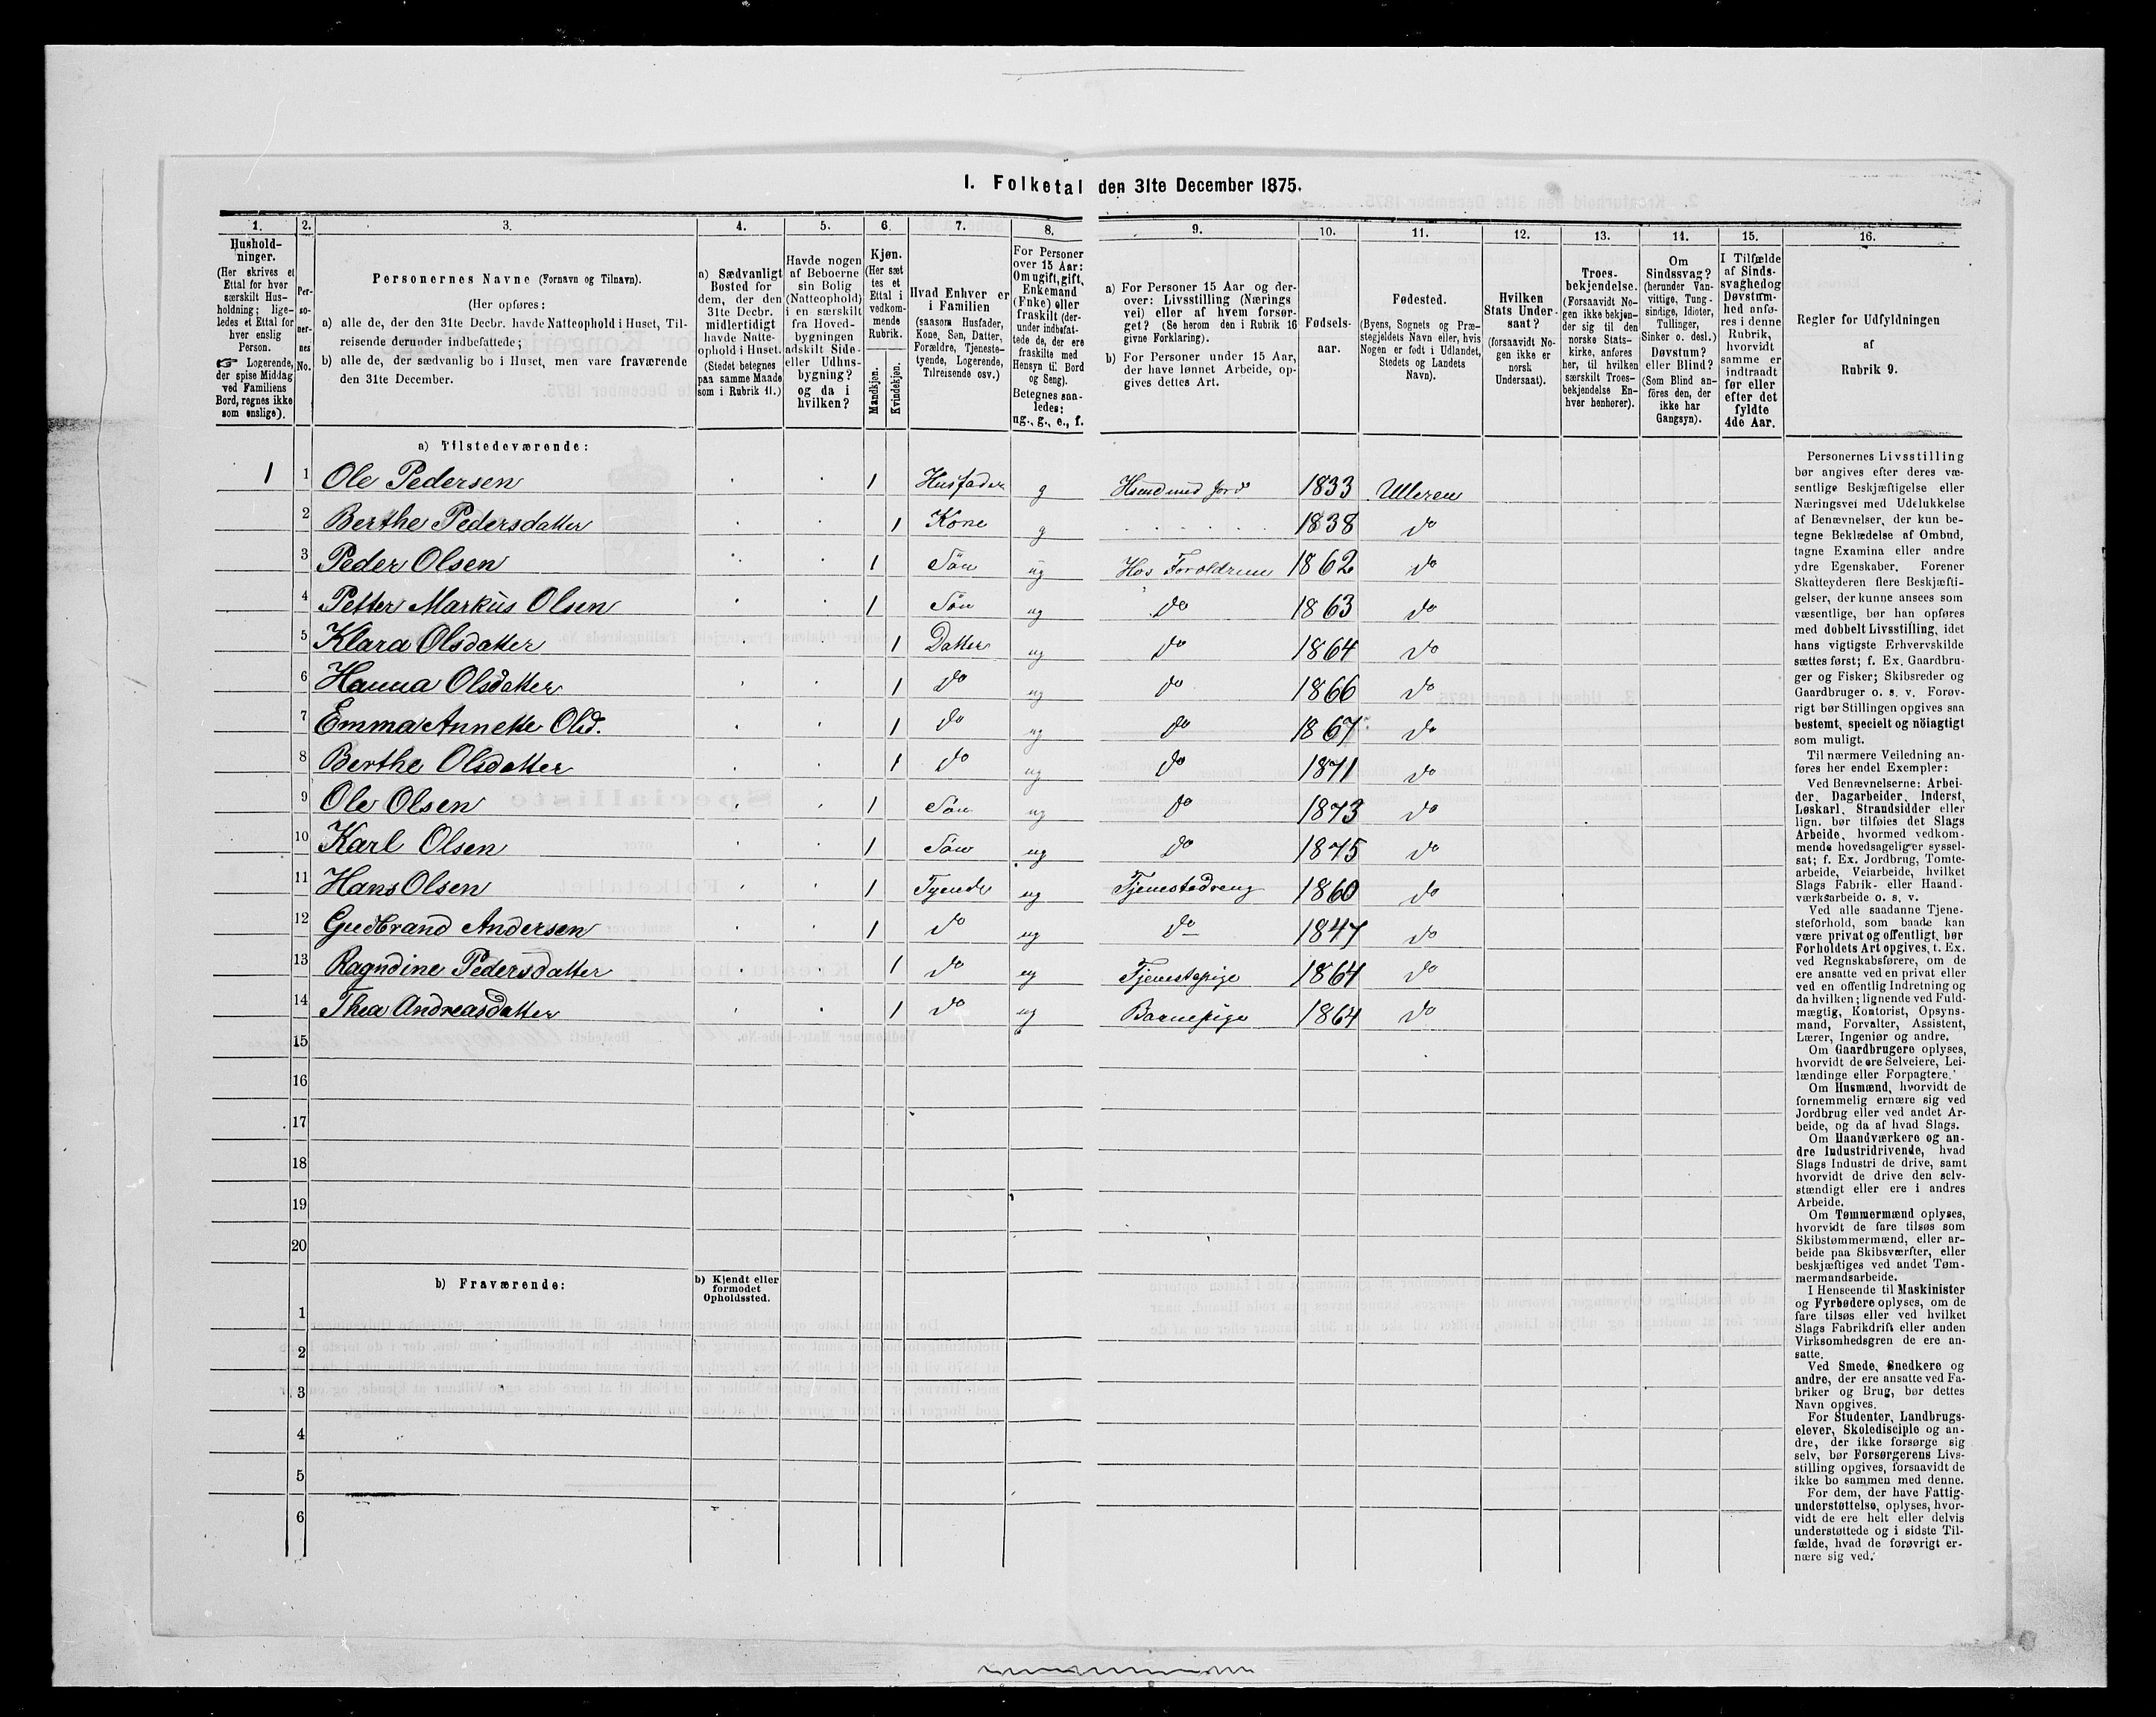 I. Folketal den 31te December 1875.
1. 2. 3. 4. 5. 6. 7. 8. 9. 10. 11. 12. 13. 14. 15. 16.
Hushold-
ninger.
(Her skrives et
Ettal for hver
særskilt Hus-
holdning; lige-
ledes et Ettal for
hver enslig
Person.
☞ Logerende,
der spise Middag
ved Familiens
Bord, regnes ikke
som enslige).
Per-
so-
ner-
nes
No.
Personernes Navne (Fornavn og Tilnavn).
(Her opføres:
a) alle de, der den 31te Decbr. havde Natteophold i Huset, Til-
reisende derunder indbefattede;
b) alle de, der sædvanlig bo i Huset, men vare fraværende
den 31te December.
a) Sædvanligt
Bosted for
dem, der den
31te Decbr.
midlertidigt
havde Natte-
ophold i Huset.
(Stedet betegnes
paa samme Maade
som i Rubrik 11.)
Havde nogen
af Beboerne
sin Bolig
(Natteophold)
i en særskilt
fra Hoved-
bygningen
adskilt Side-
eller Udhus-
bygning?
og da i
hvilken?
Kjøn.
(Her sæt
tes et
Ettal i
vedkom-
mende
Rubrik.
Mandkjøn.
Kvindekjøn.
Hvad Enhver er
i Familien
(saasom Husfader,
Kone, Søn, Datter,
Forældre, Tjeneste-
tyende, Logerende,
Tilreisende osv.)
For Personer
over 15 Aar:
Om ugift, gift,
Enkemand
(Enke) eller
fraskilt (der-
under indbefat-
tede de, der ere
fraskilte med
Hensyn til Bord
og Seng).
Betegnes saa-
ledes:
ug., g., e., f.
a) For Personer 15 Aar og der-
over: Livsstilling (Nærings
vei) eller af hvem forsør-
get? (Se herom den i Rubrik 16
givne Forklaring).
b) For Personer under 15 Aar,
der have lønnet Arbeide, op-
gives dettes Art.
Fødsels-
aar.
Fødested.
(Byens, Sognets og Præ-
stegjeldets Navn eller, hvis
Nogen er født i Udlandet,
Stedets og Landets
Navn).
Hvilken
Stats Under-
saat?
(forsaavidt No-
gen ikke er
norsk
Undersaat).
Troes-
bekjendelse.
(Forsaavidt No-
gen ikke bekjen-
der sig til den
norske Stats-
kirke, anføres
her, til hvilken
særskilt Troes-
bekjendelse En-
hver henhører).
Om
Sindssvag?
(herunder Van-
vittige, Tung-
sindige, Idioter,
Tullinger,
Sinker o. desl.)
Døvstum?
eller Blind?
(Som Blind an-
föres den, der
ikke har
Gangsyn).
I Tilfælde
af Sinds-
svaghed og
Døvstum-
hed anfø-
res i denne
Rubrik,
hvorvidt
samme er
indtraadt
før eller
efter det
fyldte
4de Aar.
Regler for Udfyldningen
af
Rubrik 9.
a) Tilstedeværende:
1 1 Ole Pedersen 1 Husfader g Husmd med Jord 1833 Ulleren
2 Berthe Pedersdatter 1 Kone g 1838 do
3 Peder Olsen 1 Søn ug Hos Foroldrene 1862 do
4 Petter Markus Olsen 1 Søn ug do 1863 do
5 Klara Olsdatter 1 Datter ug do 1864 do
6 Hanna Olsdatter 1 do ug do 1866 do
7 Emma Annette Olsd. 1 do ug do 1867 do
8 Berthe Olsdatter 1 do ug do 1871 do
9 Ole Olsen 1 Søn ug do 1873 do
10 Karl Olsen 1 Søn ug do 1875 do
11 Hans Olsen 1 Tyende ug Tjenestedreng 1860 do
12 Gudbrand Andersen 1 do ug do 1847 do
13 Ragndine Pedersdatter 1 do ug Tjenestepige 1864 do
14 Thea Andreasdatter 1 do ug Barnepige 1864 do
15
16
17
18
19
20
b) Fraværende:
b) Kjendt eller
formodet
Opholdssted.
1
2
3
4
5
6
Personernes Livsstilling
bør angives efter deres væ-
sentlige Beskjæftigelse eller
Næringsvei med Udelukkelse
af Benævnelser, der kun be-
tegne Beklædelse af Ombud,
tagne Examina eller andre
ydre Egenskaber. Forener
Skatteyderen flere Beskjæfti-
gelser, der kunne ansees som
væsentlige, bør han opføres
med dobbelt Livsstilling, idet
hans vigtigste Erhvervskilde
sættes først; f. Ex. Gaardbru-
ger og Fisker; Skibsreder og
Gaardbruger o. s. v. Forøv-
rigt bør Stillingen opgives saa
bestemt, specielt og nöiagtigt
som muligt.
Til nærmere Veiledning an-
føres her endel Exempler:
Ved Benævnelserne: Arbei-
der, Dagarbeider, Inderst,
Løskarl, Strandsidder eller
lign. bør tilføies det Slags
Arbeide, hvormed vedkom-
mende hovedsageliger syssel-
sat; f. Ex. Jordbrug, Tomte-
arbeide, Veiarbeide, hvilket
Slags Fabrik- eller Haand-
værksarbeide o. s. v.
Ved alle saadanne Tjene-
steforhold, som baade kan
være privat og offentligt, bør
Forholdets Art opgives, t. Ex.
ved Regnskabsførere, om de
ere ansatte ved en privat eller
ved en offentlig Indretning og
da hvilken; lignende ved Fuld-
mægtig, Kontorist, Opsyns-
mand, Forvalter, Assistent,
Lærer, Ingeniør og andre.
Om Gaardbrugere oplyses,
hvorvidt de ere Selveiere, Lei-
lændinge eller Forpagtere.
Om Husmænd, hvorvidt de
fornemmelig ernære sig ved
Jordbrug eller ved andet Ar-
beide, og da af hvad Slags.
Om Haandværkere og an-
dre Industridrivende, hvad
Slags Industri de drive, samt
hvorvidt de drive den selv-
stændigt eller ere i andres
Arbeide.
Om Tømmermænd oplyses,
hvorvidt de fare tilsøs som
Skibstømmermænd, eller ar-
beide paa Skibsværfter, eller
beskjæftiges ved andet Tøm-
mermandsarbeide.
I Henseende til Maskinister
og Fyrbødere oplyses, om de
fare tilsøs eller ved hvilket
Slags Fabrikdrift eller anden
Virksomhedsgren de ere an-
satte.
Ved Smede, Snedkere og
andre, der ere ansatte ved Fa-
briker og Brug, bør dettes
Navn opgives.
For Studenter, Landbrugs-
elever, Skoledisciple og an-
dre, der ikke forsørge sig
selv, bør Forsørgerens Livs-
stilling opgives, forsaavidt de
ikke bo sammen med denne.
For dem, der have Fattig-
understøttelse, oplyses, hvor-
vidt de ere helt eller delvis
understøttede og i sidste Til-
fælde, hvad de forøvrigt er-
nære sig ved.